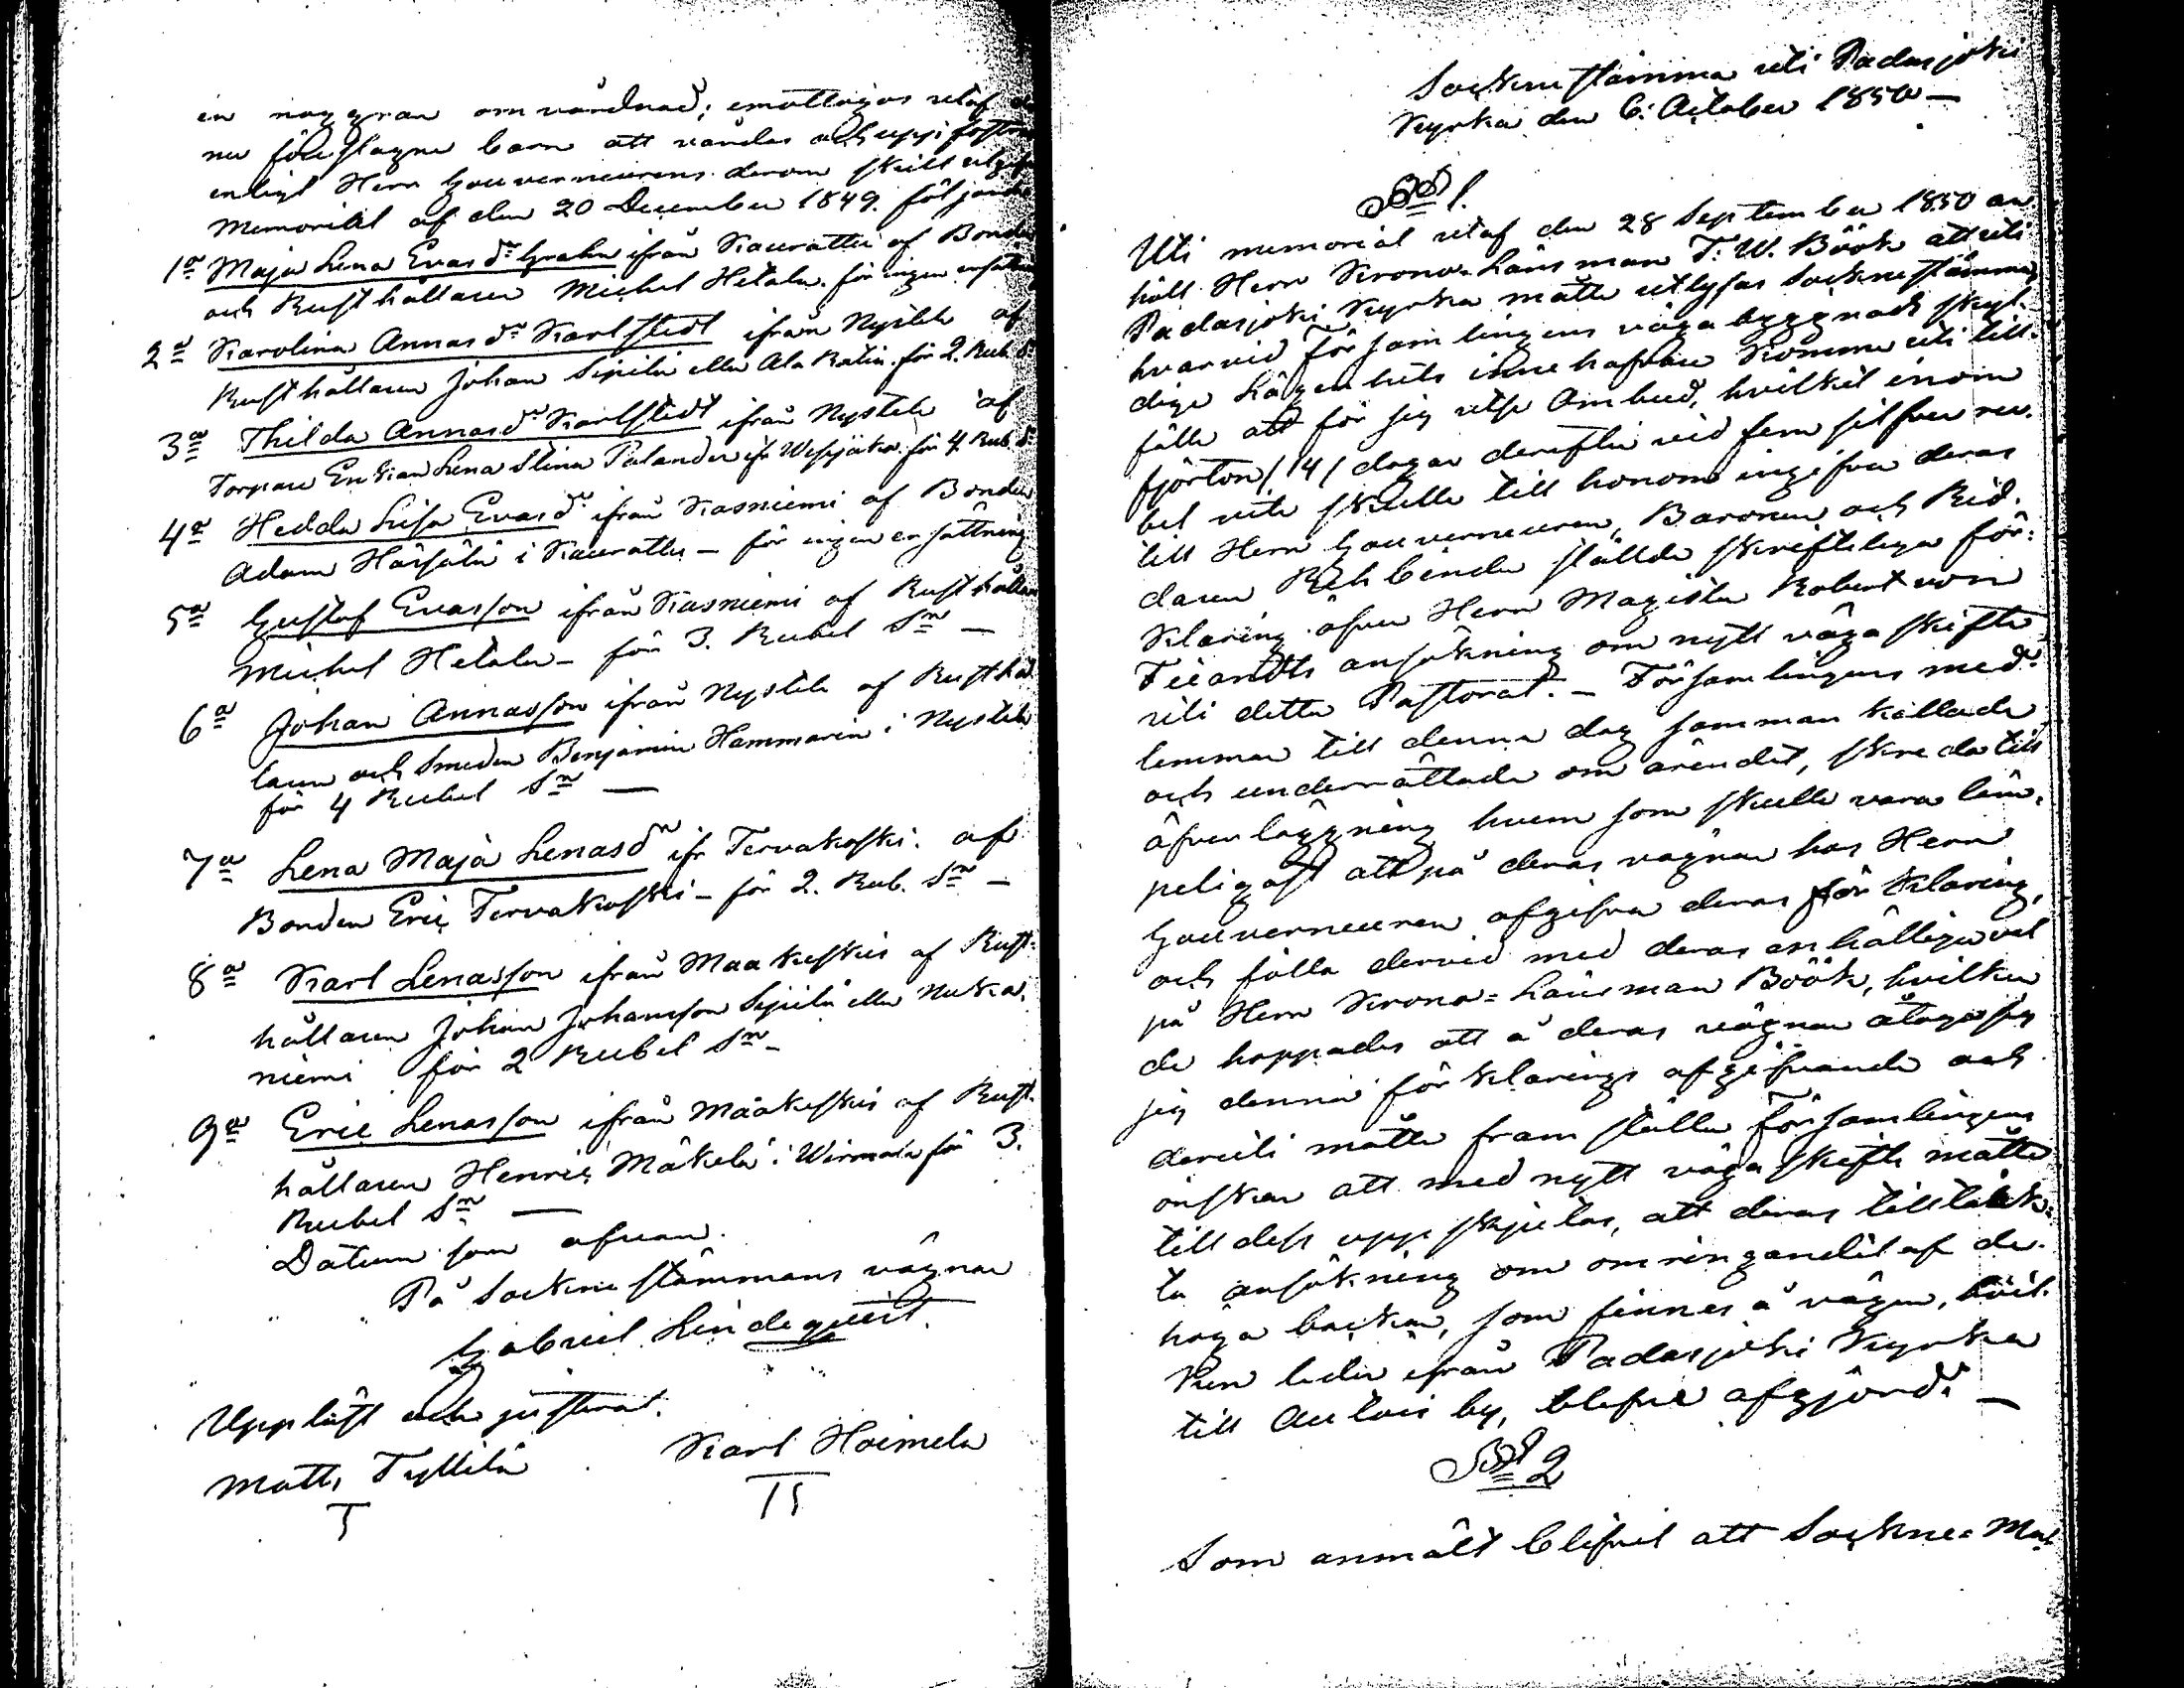 en noggran omvårdnad; emottogos utaf
nu föreslagne barn att vårdas och uppfostras
enligt Herr Gouverneurens derom skult utgifne
Memorial af den 20 December 1849. följande
1a Maja Lena Evasdr Grahn ifrån Kaurattu af Bonden
och Rusthållaren Michel Hetala. för ingen ersättning
2a Karolina Annasdr Karlstedt ifrån Nystele af
Rusthållaren Johan Sipilä eller Ala Ratia för 2. Rub. Sr
3a Thilda Annasdr Karlstedt ifrån Nystele af
Torpare Enkan Lena Stina Palander ifr Wesijako för 4 Rub. Sr
4a Hedda Lisa Evasdr ifrån Kasniemi af Bonden
Adam Härsälä i Kaurattu – för ingen ersättning
5a Gustaf Evasson ifrån Kasniemi af Rusthållaren
Michel Hetala – för 3. Rubel Sr –
6a Johan Annasson ifrån Nystele af Rusthål
laren och Smeden Benjamin Hammarin i Nystele
för 4 Rubel Sr —
7a Lena Maja Lenasdr ifr Tervakoski. af
Bonden Eric Tervakoski – för 2. Rub. Sr –
8a Karl Lenasson ifrån Maakeskis af Rust-
hållaren Johan Johansson Sipilä eller Nuka-
niemi för 2 Rubel Sr –
9a Eric Lenasson ifrån Maakeskis af Rust-
hållaren Henric Mäkelä i Wirmala för 3.
Rubel Sr —
Datum som ofvan.
På Sockne stämmans vägnar
Gabriel Lindequist.
Uppläst och justerat.
Matts Tyllilä Karl Hoimela
Sockne stämma uti Padasjoki
Kyrka den 6. October 1850 —
§ 1.
Uti memorial utaf den 28 September 1850 an
höll Herr Krono-Länsman T. W. Böök att uti
Padasjoki Kyrka måtte utlysas Socknestämma,
hvarvid Församlingens väga byggnads skyl-
dige Lägenhets innehafvare komme uti till-
fälle att för sig utse Ombud, hvilket inom
fjorton /14/ dagar derefter vid fem silfver ru-
bel vite skulle till honom ingifva deras
till Herr Gouverneuren, Baronen och Rid-
daren Rehbinder ställda skrifteliga för-
klaring öfver Herr Magister Robert von
Fieandts ansökning om nytt väga skifte
uti detta Pastorat. – Församlingens med-
lemmar till denna dag samman kallade
och underrättade om ärendet, skreda till
öfverläggning hvem som skulle vara läm-
peligast att på deras vägnar hos Herr
Gouverneuren afgifva deras förklaring,
och fälla dervid med deras enhälliga val
på Herr Krono-Länsman Böök, hvilken
de hoppades att å deras vägnar åtaga sig
sig denna förklarings afgifvande och
deruti måtte fram ställa Församlingens
önskan att med nytt väga skifte måtte
till dess uppskjutas, att deras tilltänk-
ta ansökning om omringandet af de
höga backar, som finnes å vägen, hvil-
ken leder ifrån Padasjoki Kyrka
till Autois by, blifver afgjord. —
§ 2
Som anmält blifvit att Sockne-